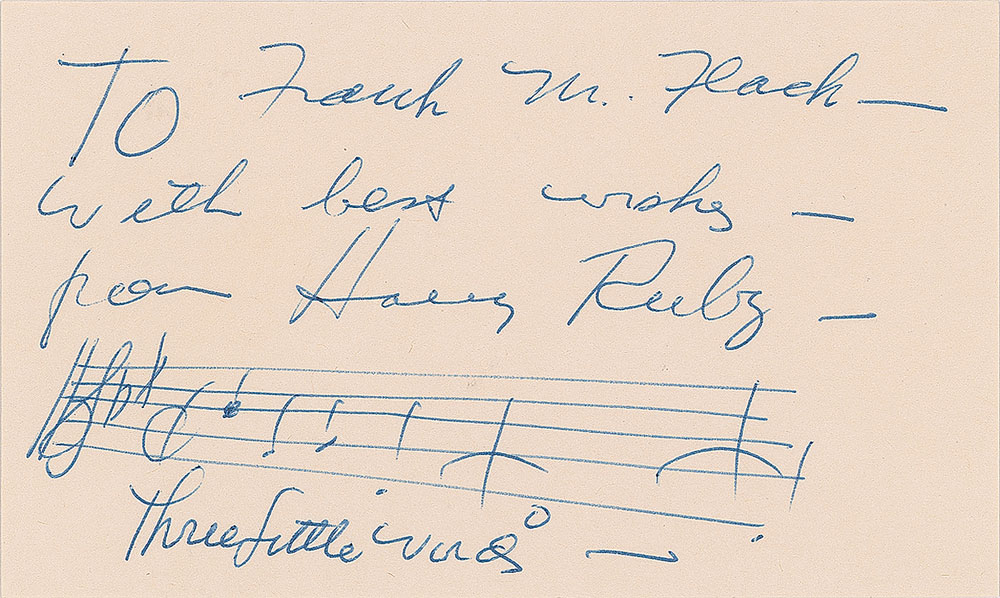 To Frank M. Flach —
With best wishes —
from Harry Ruby —
Three Little Words —